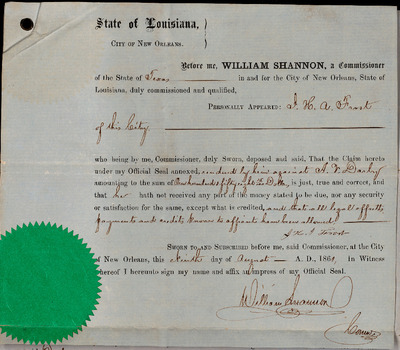 State of Louisiana,
CITY OF NEW ORLEANS.
Before me, WILLIAM SHANNON, a Commissioner
of the State of Texas in and for the City of New Orleans, State of
Louisiana, duly commissioned and qualified,
PERSONALLY APPEARED: J. H. A. Frost
of this City
who being by me, Commissioner, duly Sworn, deposed and said. That the Claim hereto
under my Official Seal annexed, by him against A.
amounting to the sum of One hundred & fifty eight Dolls, is just, true and correct, and
that he hath not received any part of the money stated to be due, nor any security
or satisfaction for the same, except what is credited, and that all legal offsetts,
payments and credits known to affiant have been allowed
Frost
SWORN TO AND SUBSCRIBED before me, said Commissioner, at the City
of New Orleans, this day of August A. D., 186 in Witness
whereof I hereunto sign my name and affix an impress of my Official Seal.
William Shannon